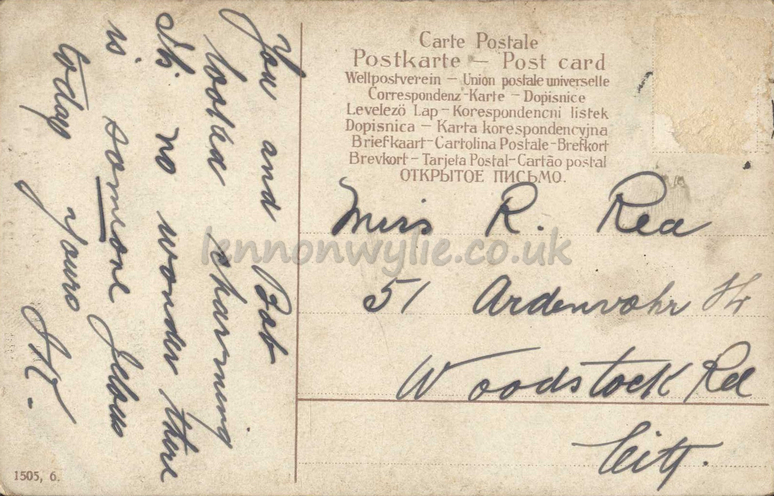 You and Bob
looked charming
Its no wonder there
is someone Jelous
today Yours
Carte Postale
Postkarte – Post card
Weltpostverein – Union postale universelle
Correspondenz-Karte – Dopisnice
Levelező Lap – Korespondencni listek
Dopisnica – Karta korespondencyjna
Briefkaart – Cartolina Postale – Brefkort
Brevkort – Tarjeta Postal – Cartão postal
ОТКРЫТОЕ ПИСЬМО.
Miss R. Rea
lennonwylie.co.uk
51 Ardenvohr St
Woodstock Rd
City.
1505, 6.